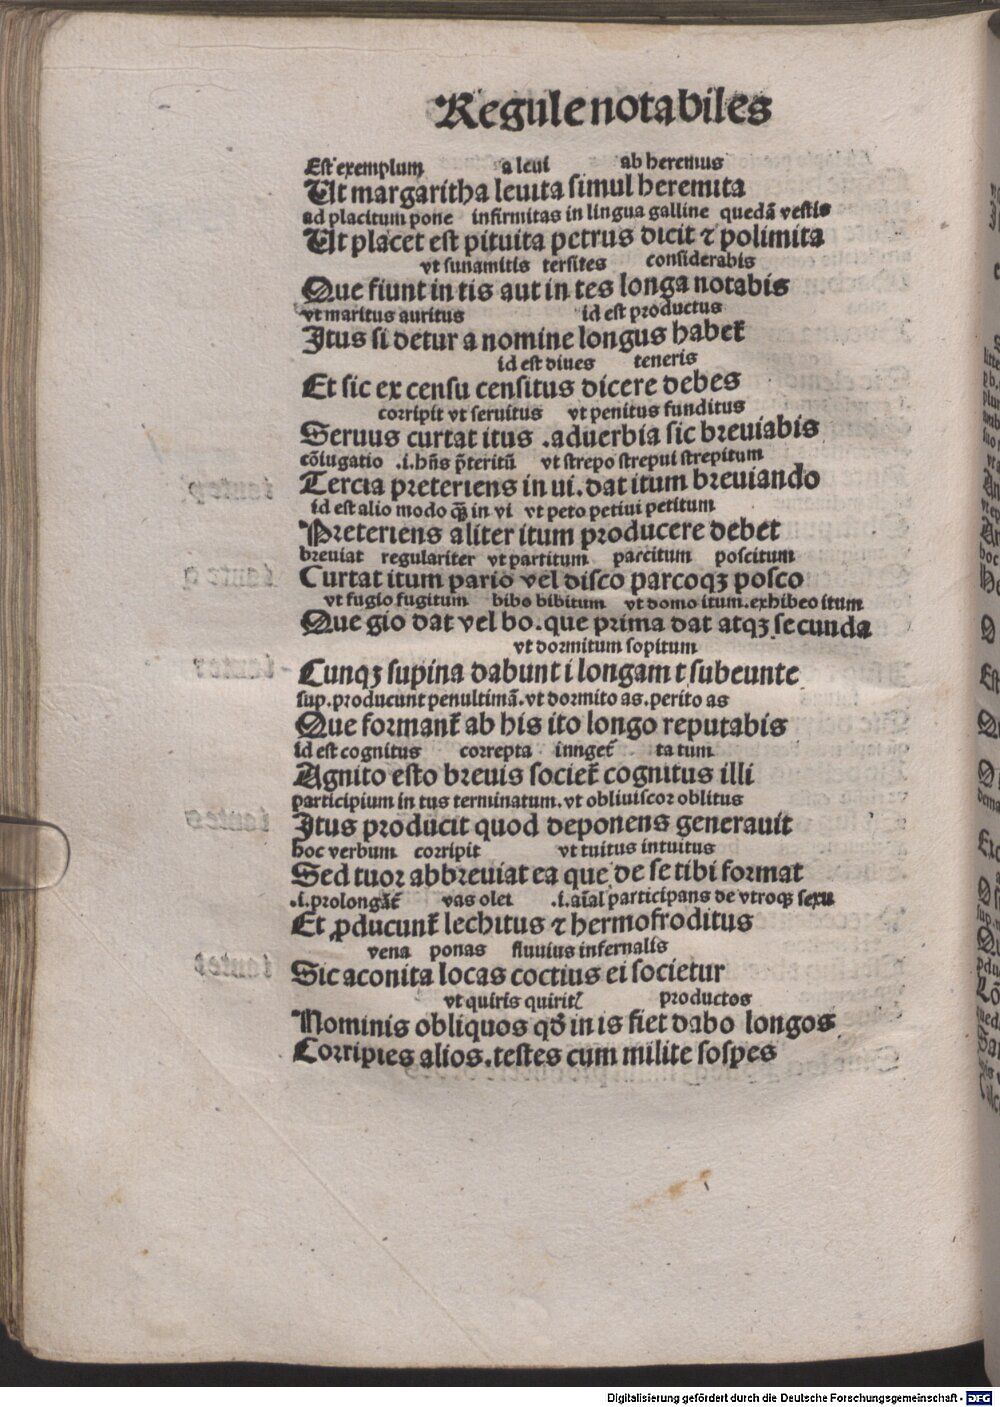 Regule notabiles
Est exemplum a leui ab heremus
Ut margaritha leuita simul heremita
ad placitum pone infirmitas in lingua galline quedā vestis
Ut placet est pituita petrus dicit ⁊ polimita
vt sunamitis tersites considerabis
Que fiunt in tis aut in tes longa notabis
vt maritus auritus id est productus
Itus si detur a nomine longus habet᷑
id est diues teneris
Et sic ex censu censitus dicere debes
corripit vt seruitus vt penitus funditus
Seruus curtat itus .aduerbia sic breuiabis
cōiugatio .i.hn̄s p̄teritū vt strepo strepui strepitum
Tercia preteriens in ui.dat itum breuiando
id est alio modo qȝ̄ in vi vt peto petiui petitum
Preteriens aliter itum producere debet
breuiat regulariter vt partitum parcitum poscitum
Curtat itum pario vel disco parcoqȝ posco
vt fugio fugitum bibo bibitum vt domo itum.exhibeo itum
Que gio dat vel bo.que prima dat atqȝ secunda
vt dormitum sopitum
Cunqȝ supina dabunt i longam t subeunte
sup.producunt penultimā.vt dormito as.perito as
Que formant᷑ ab his ito longo reputabis
id est cognitus correpta innget᷑ ta tum
Agnito esto breuis societ᷑ cognitus illi
participium in tus terminatum.vt obliuiscor oblitus
Itus producit quod deponens generauit
hoc verbum corripit vt tuitus intuitus
Sed tuor abbreuiat ea que de se tibi format
.i.prolongāt᷑ vas olei .i.aīal participans de vtroqȝ sexu
Et ꝓducunt᷑ lechitus ⁊ hermofroditus
vena ponas fluuius infernalis
Sic aconita locas coctius ei societur
vt quiris quirit᷑ productos
Nominis obliquos qd̄ in is fiet dabo longos
Corripies alios.testes cum milite sospes
Digitalisierung gefördert durch die Deutsche Forschungsgemeinschaft - DFG